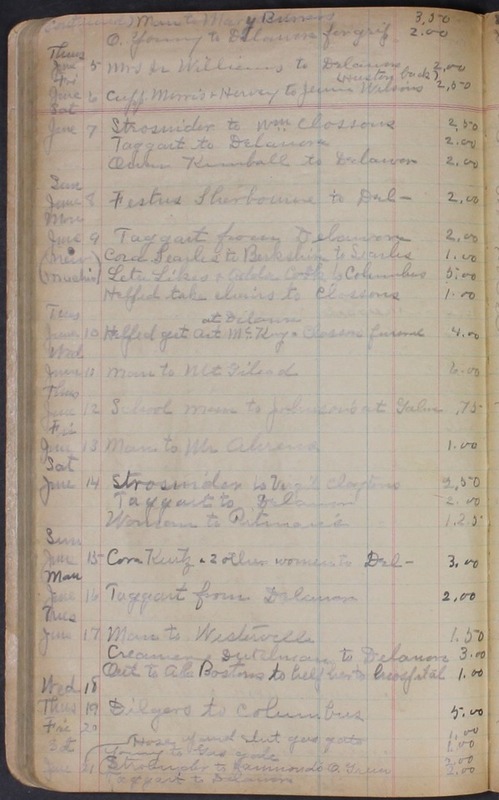 Man to Mary 3,50
O. Young to Delaware for grip 2.00
Thurs
June 5 Mrs Dr Williams to Delaware 2,00
Fri (Huston back)
June 6 Cupp Morris & Hervey to Jennie Wilsons 2,50
Sat
June 7 Strosnider to Wm Clossons 2,50
Taggart to Delaware 2.00
Kimball to Delawar 2,00
Sun
June 8 Festus Sherbourne to Del- 2,00
Mon
June 9 Taggart from Delaware 2,00
Cora Searles to Berkshire to Searles 1.00
Leta Likes & Adda Cook to Columbus 5.00
Helped take chairs to Clossons 1.00
Tues at Delaware
June 10 Helped get Art McKay & Closson funeral 4.00
Wed
June 11 Man to Mt Gilead 6.00
Thus
June 12 School man to Johnsons at Galena ,75
Fri
June 13 Man to Mr Ahrens 1.00
Sat
June 14 Strosnider to Virgil Claytons 2,50
Taggart to Delaware 2.00
Woman to 1.25
Sun
June 15 Cora Kurtz & 2 other women to Del- 3.00
Mon
June 16 Taggart from Delawar 2,00
Tues
June 17 Man to Westerville 1.50
Creamer & Dutchman to Delaware 3.00
Out to Abe Bostons to help her to hospital 1.00
Wed 18
Thus 19 Dilgers to Columbus 5.00
Fri 20 1.00
Sat and shut gas gate 1.00
to gas gate 2.00
June 21 Strosnider to Hammond & O. Grein 2.00
Taggart to Delaware